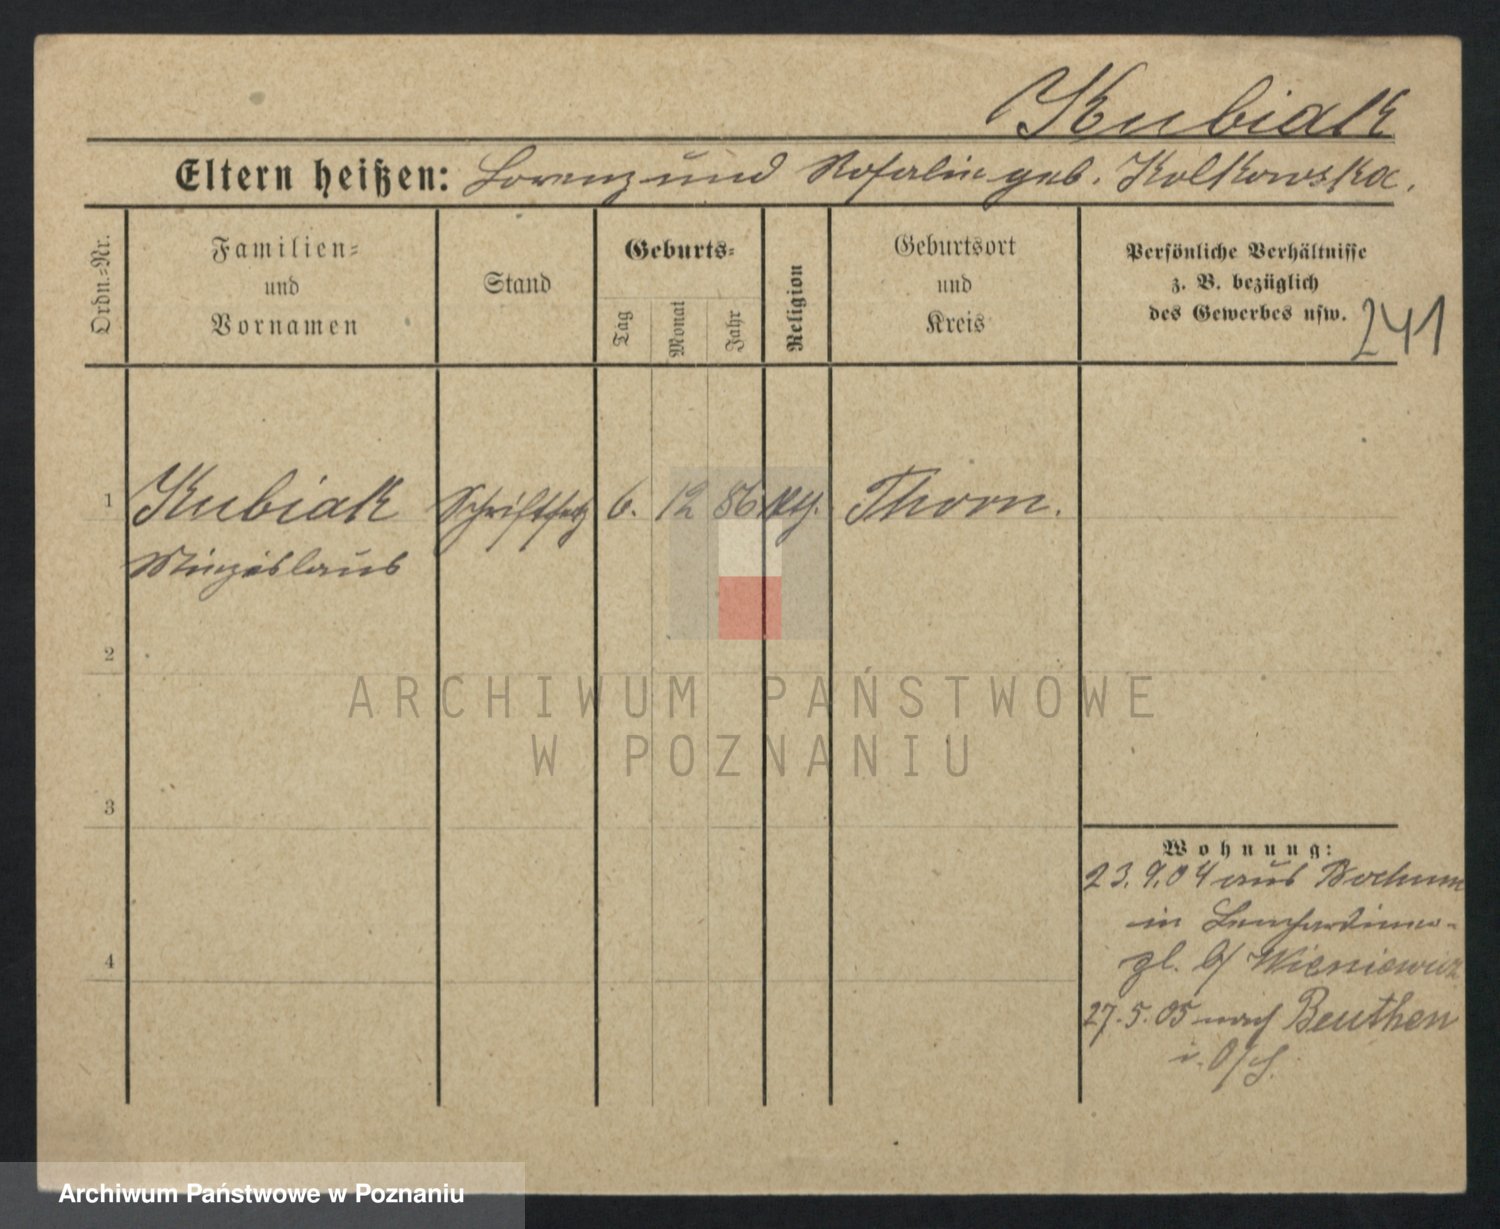 Kubiak
Eltern heißen: Lorenz und Rosalie geb. Kolkowska.
Ordn.=Nr.
Familien=
und
Vornamen
Stand
Geburts=
Tag
Monat
Jahr
Religion
Geburtsort
und
Kreis
Persönliche Verhältnisse
z. B. bezüglich
des Gewerbes usw.
241
1 Kubiak Schriftsetz 6. 12 86 kth. Thorn.
Miezislaus
2
ARCHIWUM PAŃSTWOWE
W POZNANIU
3
Wohnung:
23.9.04 aus Bochum
in
gl. b/
4
27.5.05 nach Beuthen
i. O/S.
Archiwum Państwowe w Poznaniu